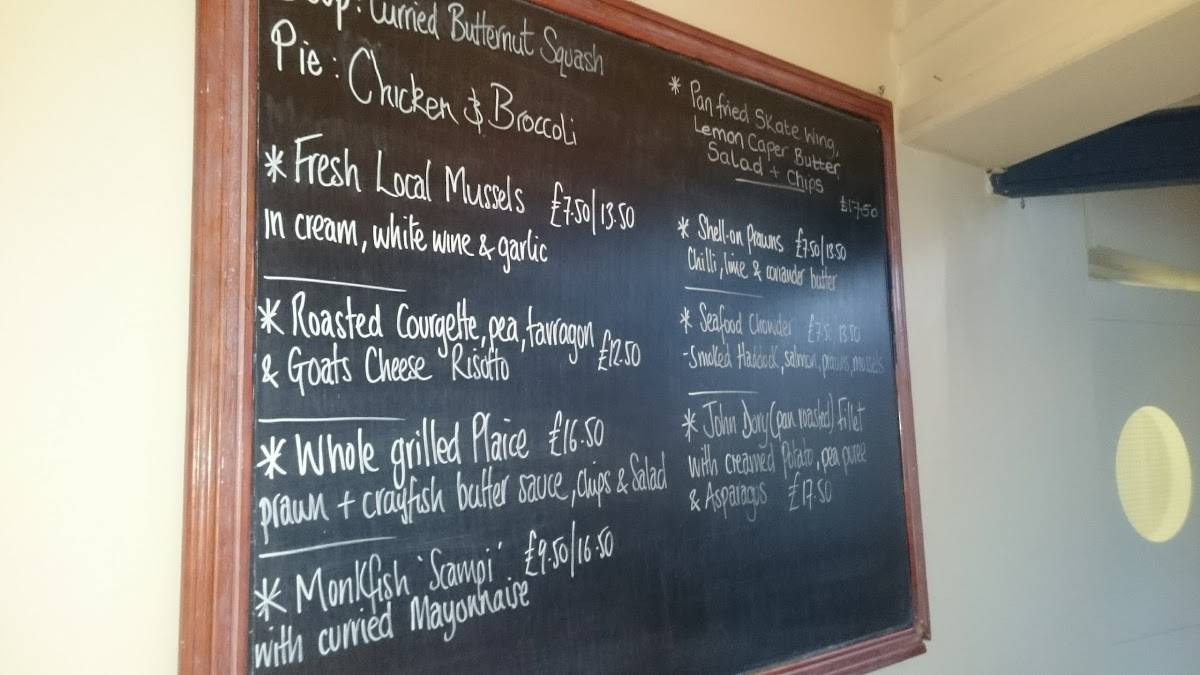 Soup: Curried Butternut Squash
Pie: Chicken & Broccoli
* Fresh Local Mussels £7.50/13.50
In cream, white wine & garlic
* Roasted Courgette, pea, tarragon
& Goats Cheese Risotto £12.50
* Whole grilled Plaice £16.50
prawn + crayfish butter sauce, chips & Salad
* Monkfish 'Scampi' £9.50/16.50
with curried Mayonnaise
* Pan fried Skate Wing,
Lemon Caper Butter
Salad + Chips
£17.50
* Shell-on Prawns £7.50/13.50
Chilli, lime & coriander butter
* Seafood Chowder £7.50 13.50
- Smoked Haddock, salmon, prawns, mussels
* John Dory (pan roasted) Fillet
with creamed Potato, pea puree
& Asparagus £17.50